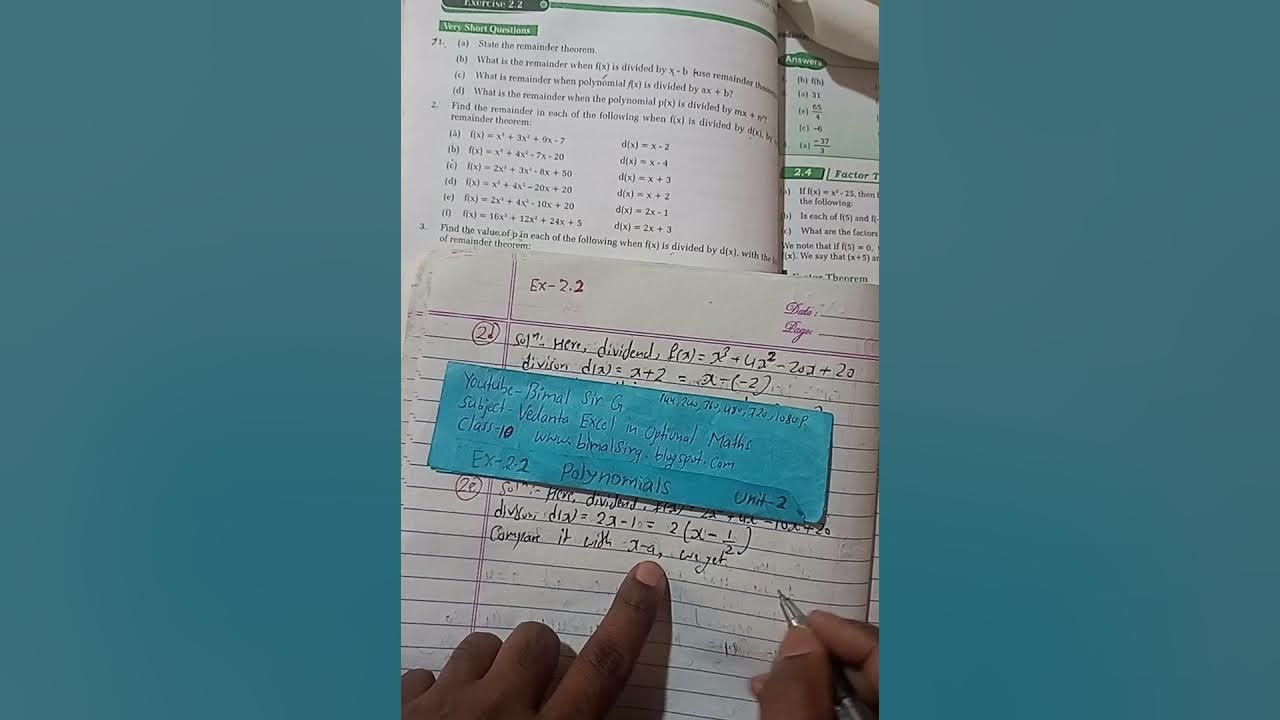 Exercise 2.2
Very Short Questions
1. (a) State the remainder theorem.
(b) What is the remainder when f(x) is divided by x - b (use remainder theorem
(c) What is remainder when polynomial f(x) is divided by ax + b?
(d) What is the remainder when the polynomial p(x) is divided by mx + n?
2. Find the remainder in each of the following when f(x) is divided by d(x), by
remainder theorem:
(a) f(x) = x³ + 3x² + 9x - 7 d(x) = x - 2
(b) f(x) = x³ + 4x² - 7x - 20 d(x) = x - 4
(c) f(x) = 2x³ + 3x² - 8x + 50 d(x) = x + 3
(d) f(x) = x³ + 4x² - 20x + 20 d(x) = x + 2
(e) f(x) = 2x³ + 4x² - 10x + 20 d(x) = 2x - 1
(f) f(x) = 16x³ + 12x² + 24x + 5 d(x) = 2x + 3
3. Find the value of p in each of the following when f(x) is divided by d(x), with the
of remainder theorem:
Answers
(b) f(b)
(a) 31
(e) 65/4
(c) -6
(a) -37/3
2.4 Factor T
If f(x) = x² - 25, then
the following:
Is each of f(5) and f(-
What are the factors
We note that if f(5) = 0,
f(x). We say that (x+5) a
Theorem
Ex-2.2
Date:
Page:
2d Solⁿ:- Here, dividend, f(x) = x³ + 4x² - 20x + 20
divison d(x) = x+2 = x-(-2)
Youtube- Bimal Sir G 144, 240, 360, 480, 720, 1080p
Subject- Vedanta Excel in Optional Maths
Class-10 www.bimalsirg.blogspot.com
Ex-2.2 Polynomials Unit-2
2e Solⁿ:- Here, dividend, f(x) = 2x³ + 4x² - 10x + 20
divison, d(x) = 2x-1 = 2(x - 1/2)
Compare it with x-a, we get